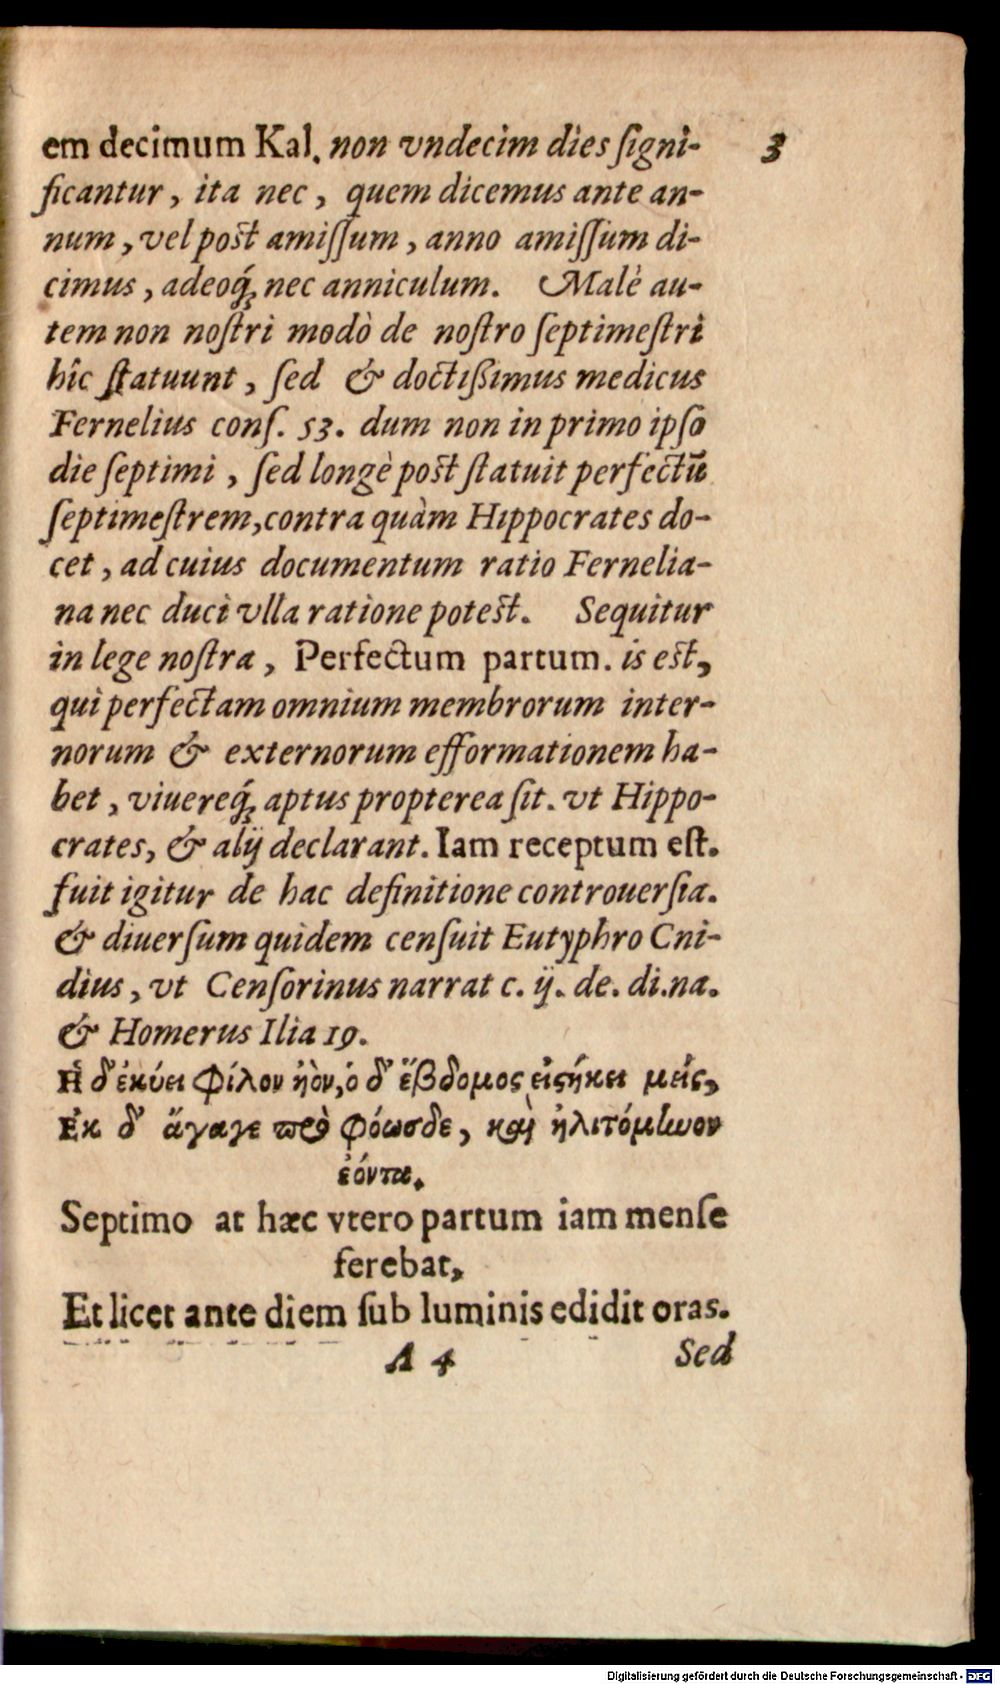 em decimum Kal. non vndecim dies ſigni- 3
ficantur, ita nec, quem dicemus ante an-
num, vel poſt amiſſum, anno amiſſum di-
cimus, adeoq́; nec anniculum. Malè au-
tem non noſtri modò de noſtro ſeptimeſtri
hîc ſtatuunt, ſed & doctißimus medicus
Fernelius conſ. 53. dum non in primo ipſo
die ſeptimi, ſed longè poſt ſtatuit perfectū
ſeptimeſtrem, contra quàm Hippocrates do-
cet, ad cuius documentum ratio Fernelia-
na nec duci vlla ratione poteſt. Sequitur
in lege noſtra, Perfectum partum. is eſt,
qui perfectam omnium membrorum inter-
norum & externorum efformationem ha-
bet, viuereq́; aptus propterea ſit. vt Hippo-
crates, & alij declarant. Iam receptum eſt.
fuit igitur de hac definitione controuerſia.
& diuerſum quidem cenſuit Eutyphro Cni-
dius, vt Cenſorinus narrat c. ij. de. di.na.
& Homerus Ilia 19.
Ἡ δ᾽ ἐκύει φίλον ἡὸν, ὁ δ᾽ ἕβδομος εἰςήκει μείς,
Ἐκ δ᾽ ἄγαγε πρὸ φόωσδε, καὶ ἠλιτόμηνον
ἐόντα.
Septimo at hæc vtero partum iam menſe
ferebat,
Et licet ante diem ſub luminis edidit oras.
A 4 Sed
Digitalisierung gefördert durch die Deutsche Forschungsgemeinschaft - DFG